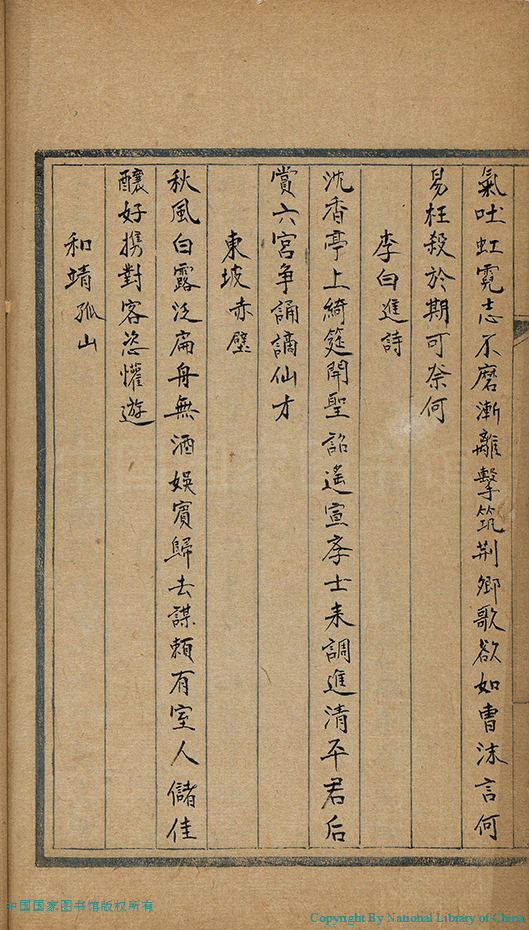 氣吐虹霓志不磨漸離擊筑荆卿歌欲如曹沫言何
易枉殺於期可奈何
李白進詩
沈香亭上綺筵開聖詔遙宣學士来調進清平君后
賞六宮争誦謫仙才
東坡赤壁
秋風白露泛扁舟無酒娛賓歸去謀頼有室人儲佳
釀好携對客恣懽遊
和靖孤山
中国国家图书馆版权所有
Copyright By National Library of China